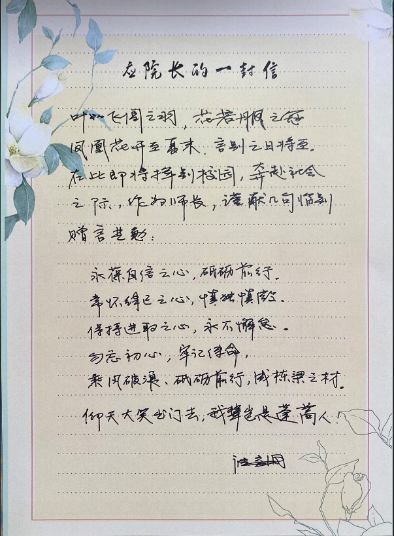 在院长的一封信
叶如飞凰之羽，花若丹凤之冠
凤凰花开至嘉末，言别之日将至。
在此即将挥别校园，奔赴社会
之际，作为师长，谨献几句惜别
赠言共勉：
永葆自信之心，砥砺前行。
常怀律己之心，慎独慎微。
保持进取之心，永不懈怠。
勿忘初心，牢记使命，
乘风破浪、砥砺前行，成栋梁之材。
仰天大笑出门去，我辈岂是蓬蒿人！